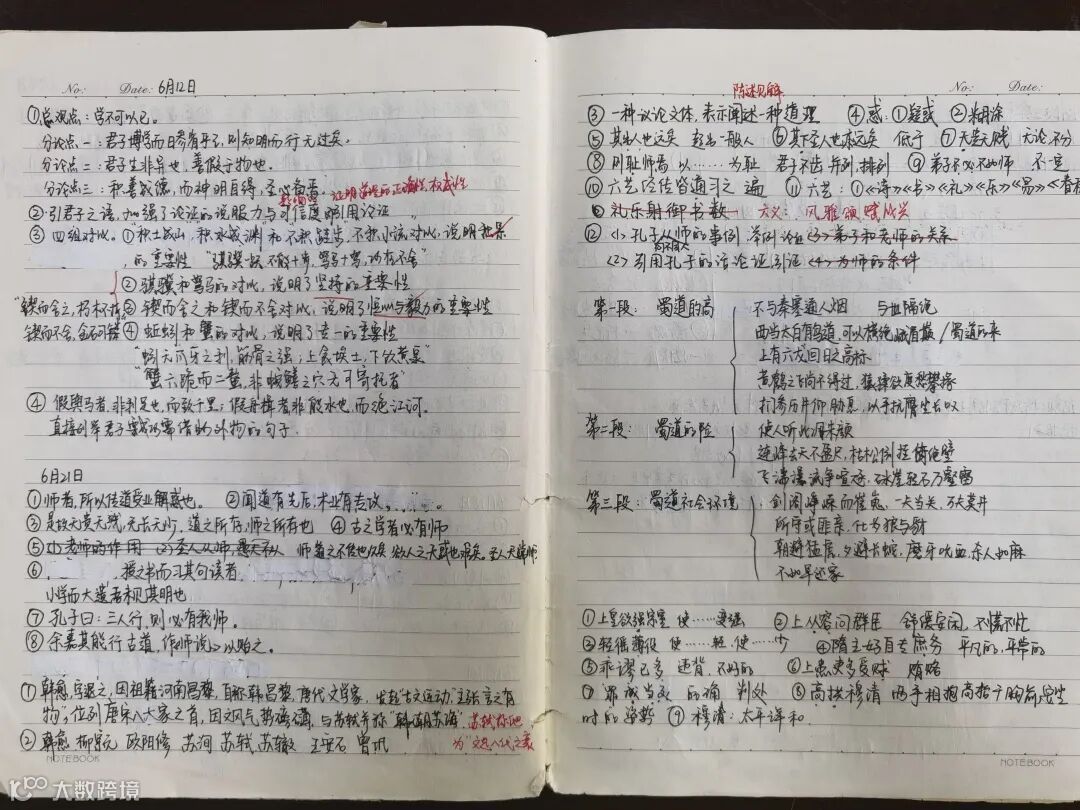 No: Date: 6月12日
①总观点：学不可以已。
分论点一：君子博学而日参省乎己，则知明而行无过矣。
分论点二：君子生非异也，善假于物也。
分论点三：积善成德，而神明自得，圣心备焉。
证明道理的正确性、权威性
②引君子之语，加强了论证的说服力与可信度 引用论证
③四组对比。①"积土成山，积水成渊 和 不积跬步"，不积小流对比，说明积累
的重要性 "骐骥一跃，不能十步，驽马十驾，功在不舍"
②骐骥和驽马的对比，说明了坚持的重要性
"锲而舍之，朽木不折 ③锲而舍之和锲而不舍对比，说明了恒心与毅力的重要性
锲而不舍，金石可镂 ④蚯蚓和蟹的对比，说明了专一的重要性
"蚓无爪牙之利，筋骨之强，上食埃土，下饮黄泉"
"蟹六跪而二螯，非蛇鳝之穴无可寄托者"
④假舆马者，非利足也，而致千里；假舟楫者，非能水也，而绝江河。
直接列举君子要借助外物的句子
6月21日
①师者，所以传道受业解惑也。 ②闻道有先后，术业有专攻
③是故无贵无贱，无长无少，道之所存，师之所存也 ④古之学者必有师
⑤ 师道之不传也久矣 欲人之无惑也难矣
⑥ 授之书而习其句读者
小学而大遗，吾未见其明也
⑦孔子曰：三人行，则必有我师。
⑧余嘉其能行古道，作《师说》以贻之。
①韩愈，字退之，因祖籍河南昌黎，自称韩昌黎，唐代文学家，发起"古文运动"，主张言之有
物，位列唐宋八大家之首，因文风气势磅礴，与苏轼并称"韩潮苏海" 苏轼称他
②韩愈 柳宗元 欧阳修 苏洵 苏轼 苏辙 王安石 曾巩 为"文起八代之衰
NOTEBOOK
No: Date:
陈述见解
③一种议论文体，表示阐述一种道理 ④惑：①疑惑 ②糊涂
⑤其出人也远矣 超出一般人 ⑥其下圣人也亦远矣 低于 ⑦无贵无贱 无论，不分
⑧则耻师焉 以……为耻 君子不齿 并列，排列 ⑨弟子不必不如师 不一定
⑩六艺经传皆通习之 遍 ⑪六艺：《诗》《书》《礼》《乐》《易》《春秋
礼乐射御书数 六义：风雅颂赋比兴
⑫(1)孔子从师的事例 举例论证 (3)弟子和老师的关系
(2)引用孔子的话论证 引证 (4)为师的条件
第一段：蜀道的高 不与秦塞通人烟 与世隔绝
西当太白有鸟道，可以横绝峨眉巅
上有六龙回日之高标
黄鹤之飞尚不得过，猿猱欲度愁攀援
扪参历井仰胁息，以手抚膺坐长叹
第二段：蜀道的险 使人听此凋朱颜
连峰去天不盈尺，枯松倒挂倚绝壁
飞湍瀑流争喧豗，砯崖转石万壑雷
第三段：蜀道社会环境 剑阁峥嵘而崔嵬，一夫当关，万夫莫开
所守或匪亲，化为狼与豺
朝避猛虎，夕避长蛇，磨牙吮血，杀人如麻
不如早还家
①上皇欲强宗室 使……变强 ②上从容问群臣 舒缓安闲，不慌不忙
③轻徭薄役 使……轻，使……少 ④隋主好自专庶务 平凡的，平常的
⑤乖谬已多 违背，不好的 ⑥上患吏多受赇 贿赂
⑦ 的确 判处 ⑧高拱穆清 两手相抱高抬于胸前，安坐
时的姿势 ⑨穆清：太平祥和
NOTEBOOK
大数跨境